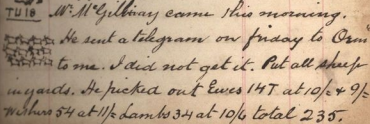 TU 18 Mr McGilbray came this morning.
He sent a telegram on friday to
to me. I did not get it. Put all sheep
in yards. He picked out Ewes 147 at 10/- & 9/-
Wethers 54 at 11/- Lambs 34 at 10/6 total 235.